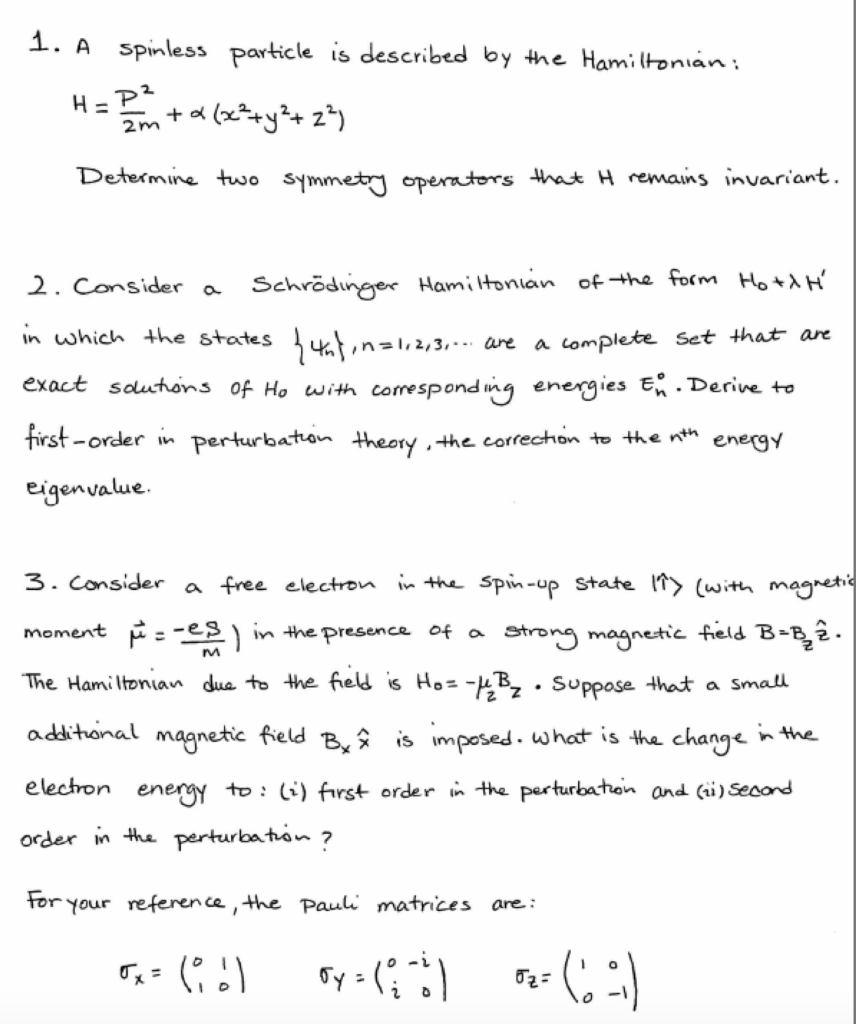 1. A spinless particle is described by the Hamiltonian:
H = P²/2m + α (x²+y²+z²)
Determine two symmetry operators that H remains invariant.
2. Consider a Schrödinger Hamiltonian of the form H₀+λH'
in which the states {ψₙ}, n=1,2,3,... are a complete set that are
exact solutions of H₀ with corresponding energies Eₙ°. Derive to
first-order in perturbation theory, the correction to the nth energy
eigenvalue.
3. Consider a free electron in the spin-up state |↑> (with magnetic
moment μ⃗ = -eS/M) in the presence of a strong magnetic field B=B_z ẑ.
The Hamiltonian due to the field is H₀= -μ_z B_z. Suppose that a small
additional magnetic field Bₓ x̂ is imposed. What is the change in the
electron energy to: (i) first order in the perturbation and (ii) second
order in the perturbation?
For your reference, the Pauli matrices are:
σₓ = (0 1; 1 0) σ_y = (0 -i; i 0) σ_z = (1 0; 0 -1)